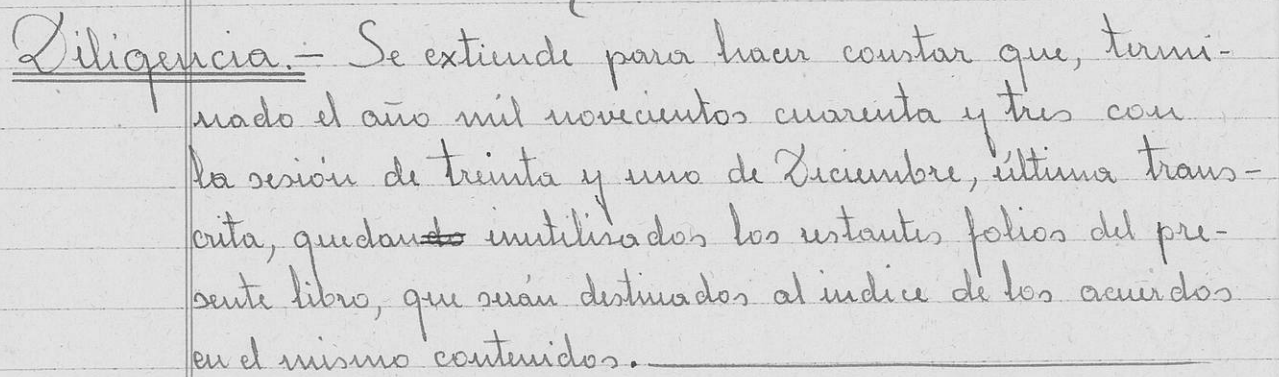 Diligencia.- Se extiende para hacer constar que, termi-
nado el año mil novecientos cuarenta y tres con
la sesión de treinta y uno de Diciembre, última trans-
crita, quedando inutilizados los restantes folios del pre-
sente libro, que serán destinados al indice de los acuerdos
en el mismo contenidos.